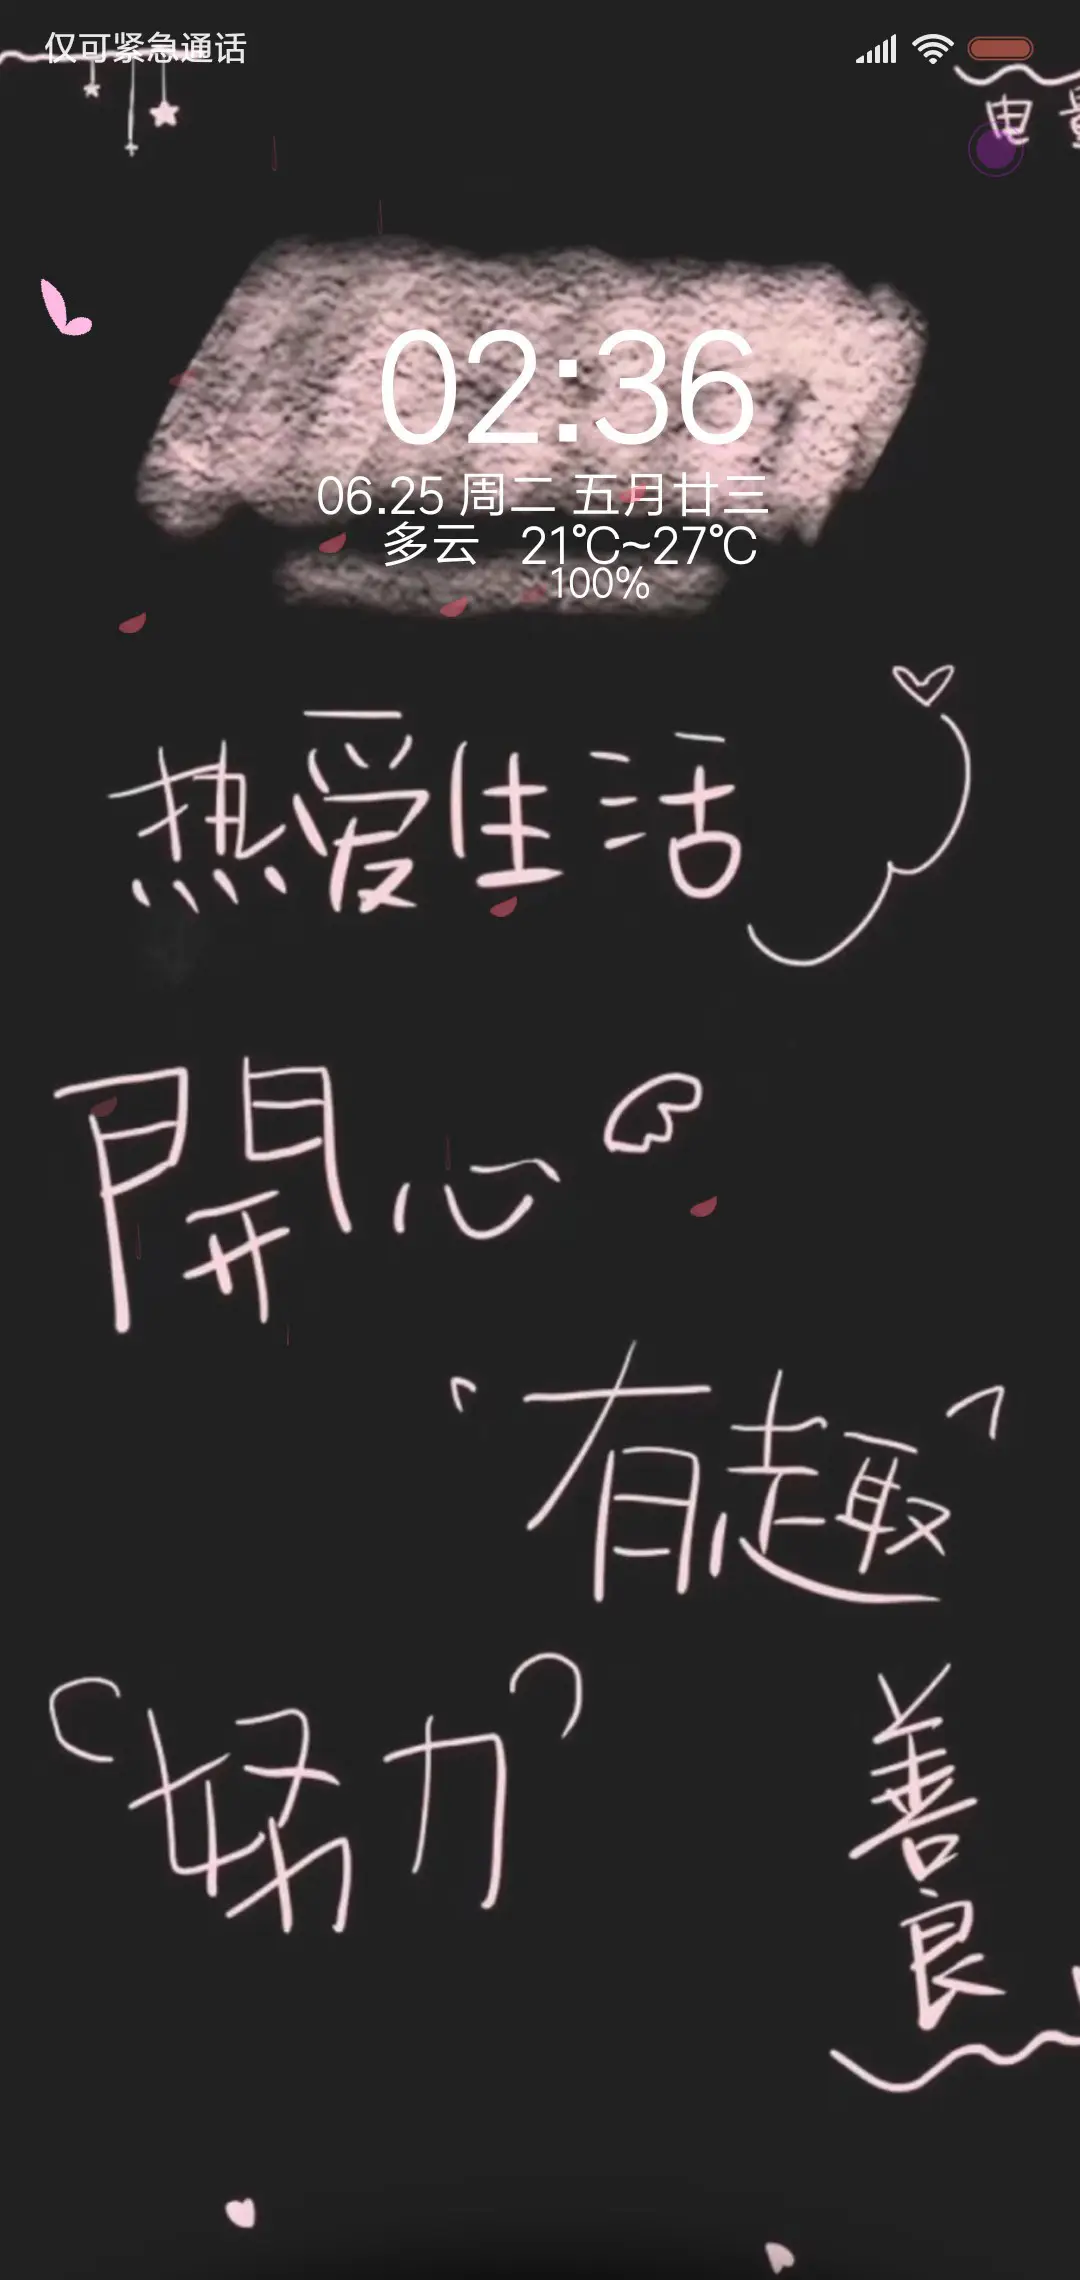 仅可紧急通话
电量
02:36
06.25 周二 五月廿三
多云 21℃~27℃
100%
热爱生活
開心
有趣
努力
善良